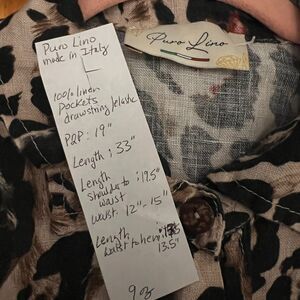 Puro Lino
made in Italy
L
100% linen
Pockets
drawstring/elastic
P2P: 19"
Length: 33"
Length
shoulder to : 19.5"
waist
Waist: 12"-15"
Length
waist to hem: 
13.5"
9 oz
Puro Lino